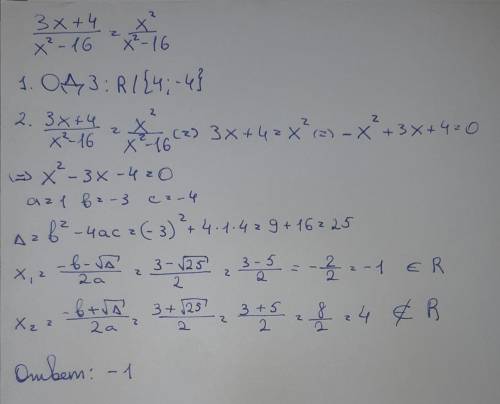 (3x+4)/(x²-16) = x²/(x²-16)
1. ОДЗ: R/{4;-4}
2. (3x+4)/(x²-16) = x²/(x²-16) (=) 3x+4=x² (=) -x²+3x+4=0
(=) x²-3x-4=0
a=1 b=-3 c=-4
Δ=b²-4ac=(-3)²+4·1·4=9+16=25
x₁=(-b-√Δ)/2a=(3-√25)/2=(3-5)/2=-2/2=-1 ∈ R
x₂=(-b+√Δ)/2a=(3+√25)/2=(3+5)/2=8/2=4 ∉ R
Ответ: -1